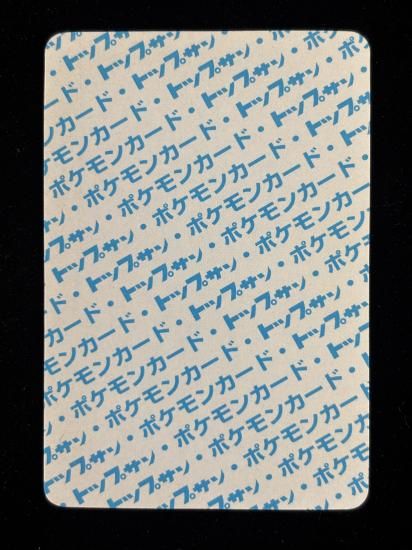 トップサン・
ンカード・トップサン・ポ
ポケモンカード・トップサン・ポケ
・ポケモンカード・トップサン・
トップサン・ポケモンカード・トップ
トップサン・ポケモンカード・
ド・トップサン・ポケモンカード
カード・トップサン・ポケモン
モンカード・トップサン・ポケモ
ポケモンカード・トップサン・ポ
・ポケモンカード・トップサン・
サン・ポケモンカード・トップサン
トップサン・ポケモンカード・
・トップサン・ポケモンカード